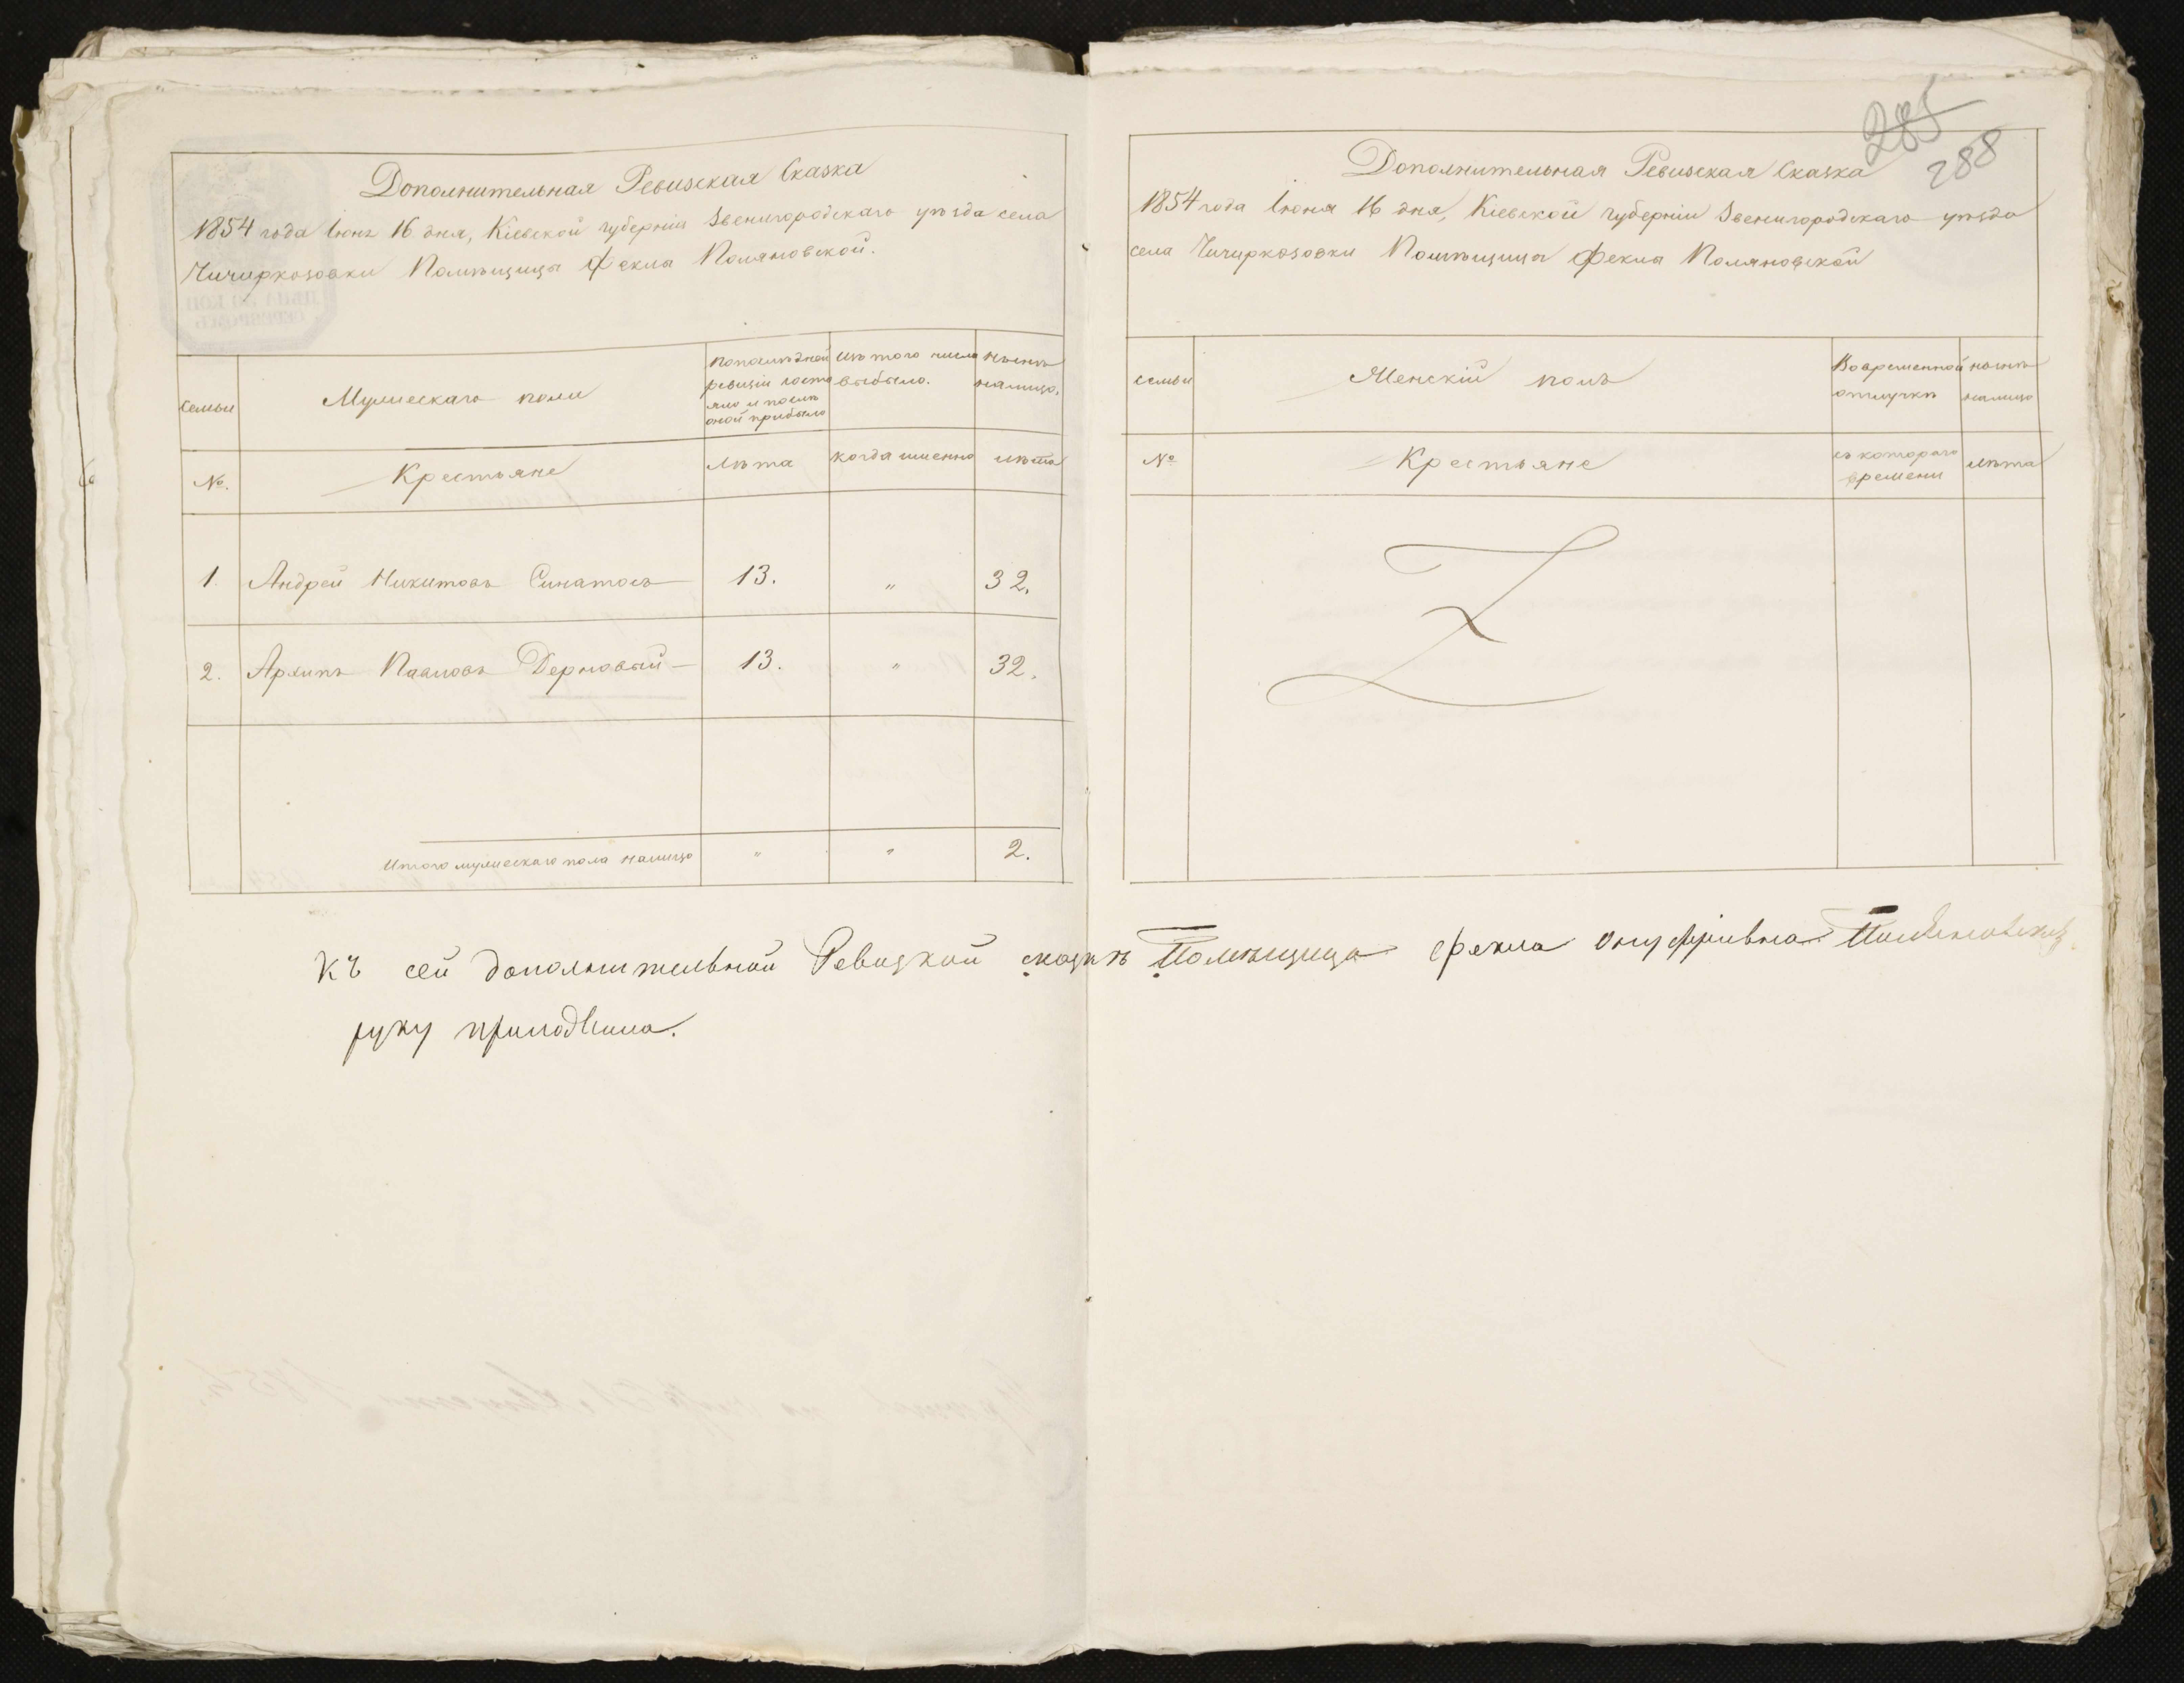 Дополнительная Ревизская Сказка
1854 года Іюня 16 дня, Кіевской губерніи Звенигородскаго уѣзда села
Чичиркозовки Помѣщицы Фекла Поляновской.
семьи
Мужескаго полу
По последней ревизіи состояло и после оной прибыло
Изъ того числа выбыло.
Нынѣ налицо.
№.
Крестьяне
Лѣта
когда именно
лѣта
1. Андрей Никитовъ Синатось 13. " 32.
2. Архипъ Павловъ Дерновый 13. " 32.
Итого мужескаго пола налицо " " 2.
285
288
Дополнительная Ревизская Сказка
1854 года Іюня 16 дня, Кіевской губерніи Звенигородскаго уѣзда
села Чичиркозовки Помѣщицы Фекла Поляновской
семьи
Женскій полъ
Во временной отлучкѣ
нынѣ налицо
№
Крестьяне
съ котораго времени
лѣта
Къ сей дополнительной Ревизкой сказкѣ Помѣщица Фекла Онуфріивна Поляновская
руку приложила.